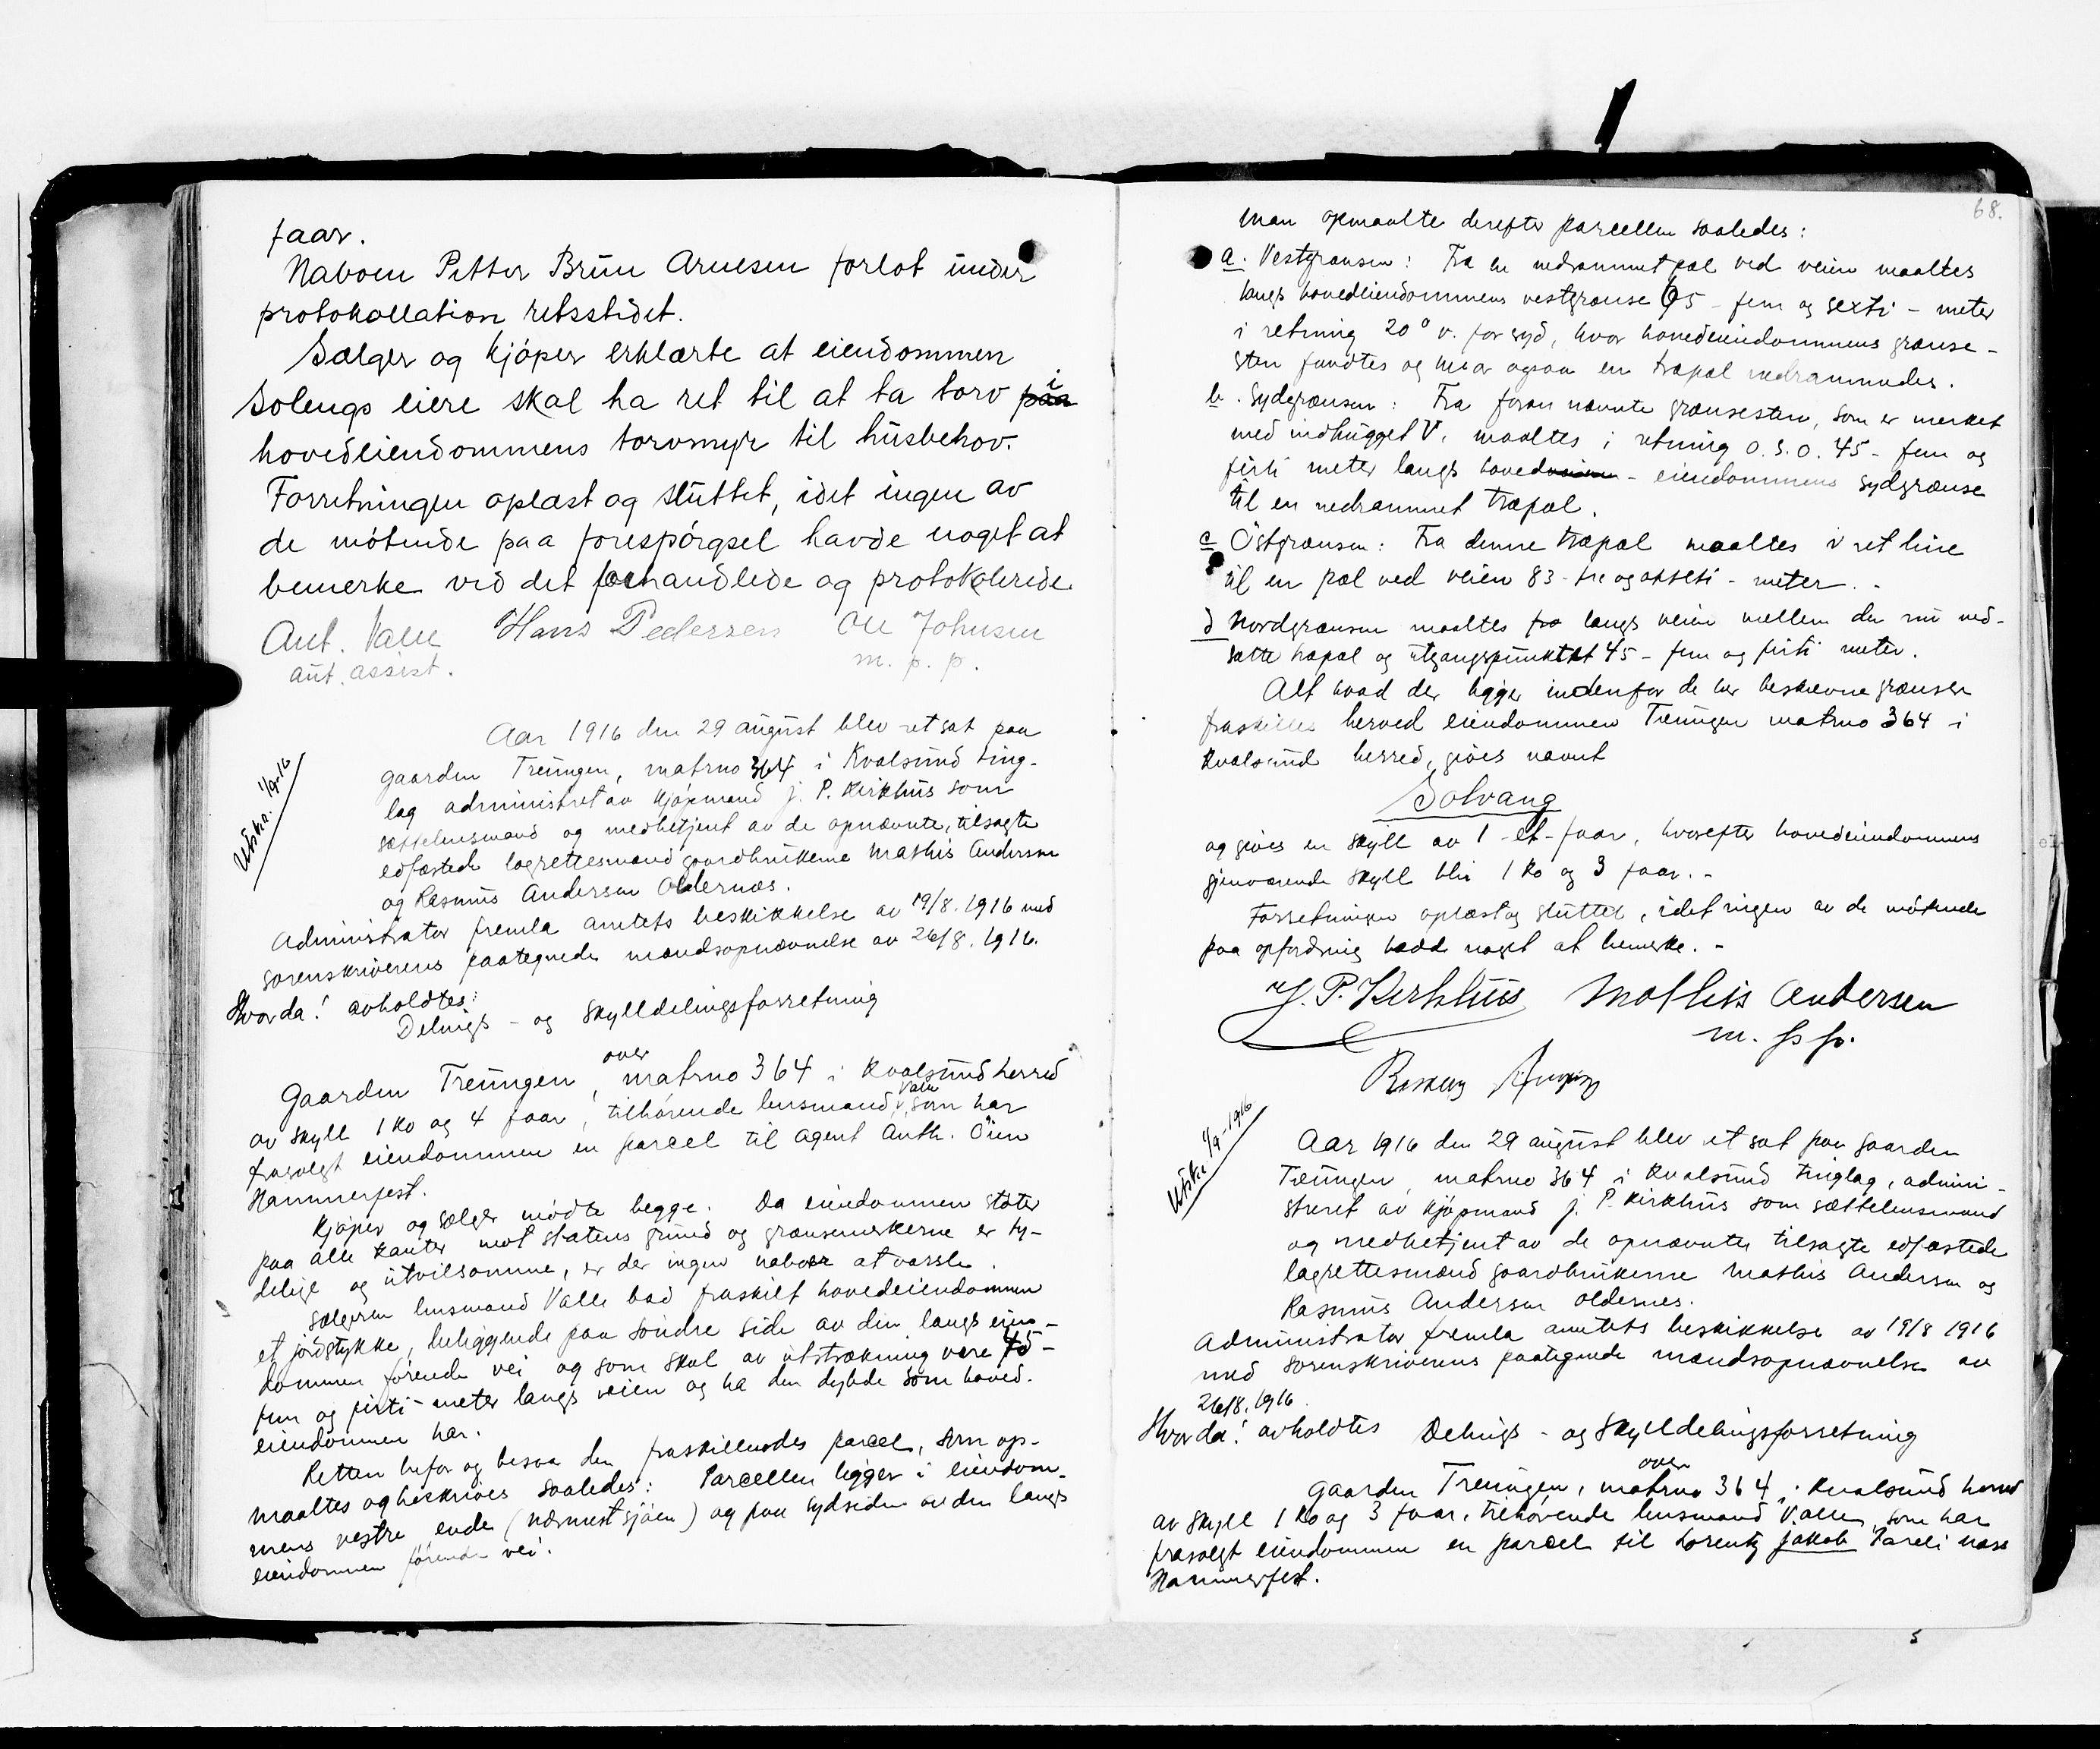 faar.
Naboen Petter Brun Arnesen forlot under
protokollation retsstedet.
Sælger og kjøper erklærte at eiendommen
Solengs eiere skal ha ret til at ta torv paa i
hovedeiendommens torvmyr til husbehov.
Forretningen oplæst og sluttet, idet ingen av
de møtende paa forespørgsel havde noget at
bemerke ved det forhandlede og protokolerede
Ant. Valle Hans Pedersen Ole Johnsen
aut. assist. m. p. p.
Utskr. 1/9-16
Aar 1916 den 29 august blev ret sat paa
gaarden Treungen, matrno 364 i Kvalsund ting-
lag administret av kjøpmand J. P. Kirkhus som
sættelensmand og medbetjent av de opnævnte, tilsagte
edfæstede lagrettesmænd gaardbrukerne Mathis Andersen
og Rasmus Andersen Oldernes.
Administrator fremla amtets beskikkelse av 19/8. 1916 med
sorenskriverens paategnede mandsopnævnelse av 26/8. 1916.
Hvorda! avholdtes:
Delings- og skylddelingsforretning
over
Gaarden Treungen, matrno 364 i Kvalsund herred
av skyld 1 ko og 4 faar, tilhørende lensmand Valle, som har
frasolgt eiendommen en parcel til agent Anth. Øien
Hammerfest.
Kjøper og sælger mødte begge. Da eiendommen støter
paa alle kanter mot statens grund og grænsemerkerne er ty-
delige og utvilsomme, er der ingen naboer at varsle.
Sælgeren lensmand Valle bad fraskilt hovedeiendommen
et jordstykke, beliggende paa søndre side av den langs eien-
dommen førende vei og som skal av utstrækning være 45-
fem og firti- meter langs veien og ha den dybde som hoved-
eiendommen har.
Retten befor og besaa den fraskillendes parcel, som op-
maaltes og beskrives saaledes: Parcellen ligger i eiendom-
mens vestre ende (nærmest sjøen) og paa sydsiden av den langs
eiendommen førende vei.
68.
Man opmaalte derefter parcellen saaledes:
a. Vestgrænsen: Fra en nedrammet pæl ved veien maaltes
langs hovedeiendommens vestgrænse 65 - fem og sexti - meter
i retning 20° v. for syd, hvor hovedeiendommens grænse-
sten fandtes og hvor ogsaa en træpæl nedrammedes.
b. Sydgrænsen: Fra foran nævnte grænsesten, som er merket
med indhugget V. maaltes i retning O.S.O. 45 - fem og
firti meter langs hovedveien - eiendommens sydgrænse
til en nedrammet træpæl.
c Østgrænsen: Fra denne træpæl maaltes i ret linie
til en pæl ved veien 83 - tre og otteti - meter. -
d Nordgrænsen maaltes fra langs veien mellem den nu ned-
satte træpæl og utgangspunktet 45 - fem og firti meter.
Alt hvad der ligger indenfor de her beskrevne grænser
fraskilles herved eiendommen Treungen matrno 364 i
Kvalsund herred, gives navnet
Solvang
og gives en skyld av 1 - et - faar, hvorefter hovedeiendommens
gjenværende skyld blir 1 ko og 3 faar. -
Forretningen oplæst og sluttet, idet ingen av de møtende
paa opfordring hadde noget at bemerke. -
J. P. Kirkhus Mathis Andersen
m. p. p.
Utskr. 1/9-1916
Aar 1916 den 29 august blev ret sat paa gaarden
Treungen, matrno 364 i Kvalsund tinglag, admini-
streret av kjøpmand J. P. Kirkhus som sættelensmand
og medbetjent av de opnævnte tilsagte edfæstede
lagrettesmænd gaardbrukerne Mathis Andersen og
Rasmus Andersen Oldernes.
Administrator fremla amtets beskikkelse av 19/8 1916
med sorenskriverens paategnede mandsopnævnelse av
26/8. 1916.
Hvorda! avholdtes Delings- og skylddelingsforretning
over
Gaarden Treungen, matrno 364 i Kvalsund herred
av skyld 1 ko og 3 faar, tilhørende lensmand Valle, som har
frasolgt eiendommen en parcel til Lorentz Jakob Pareli
Hammerfest.